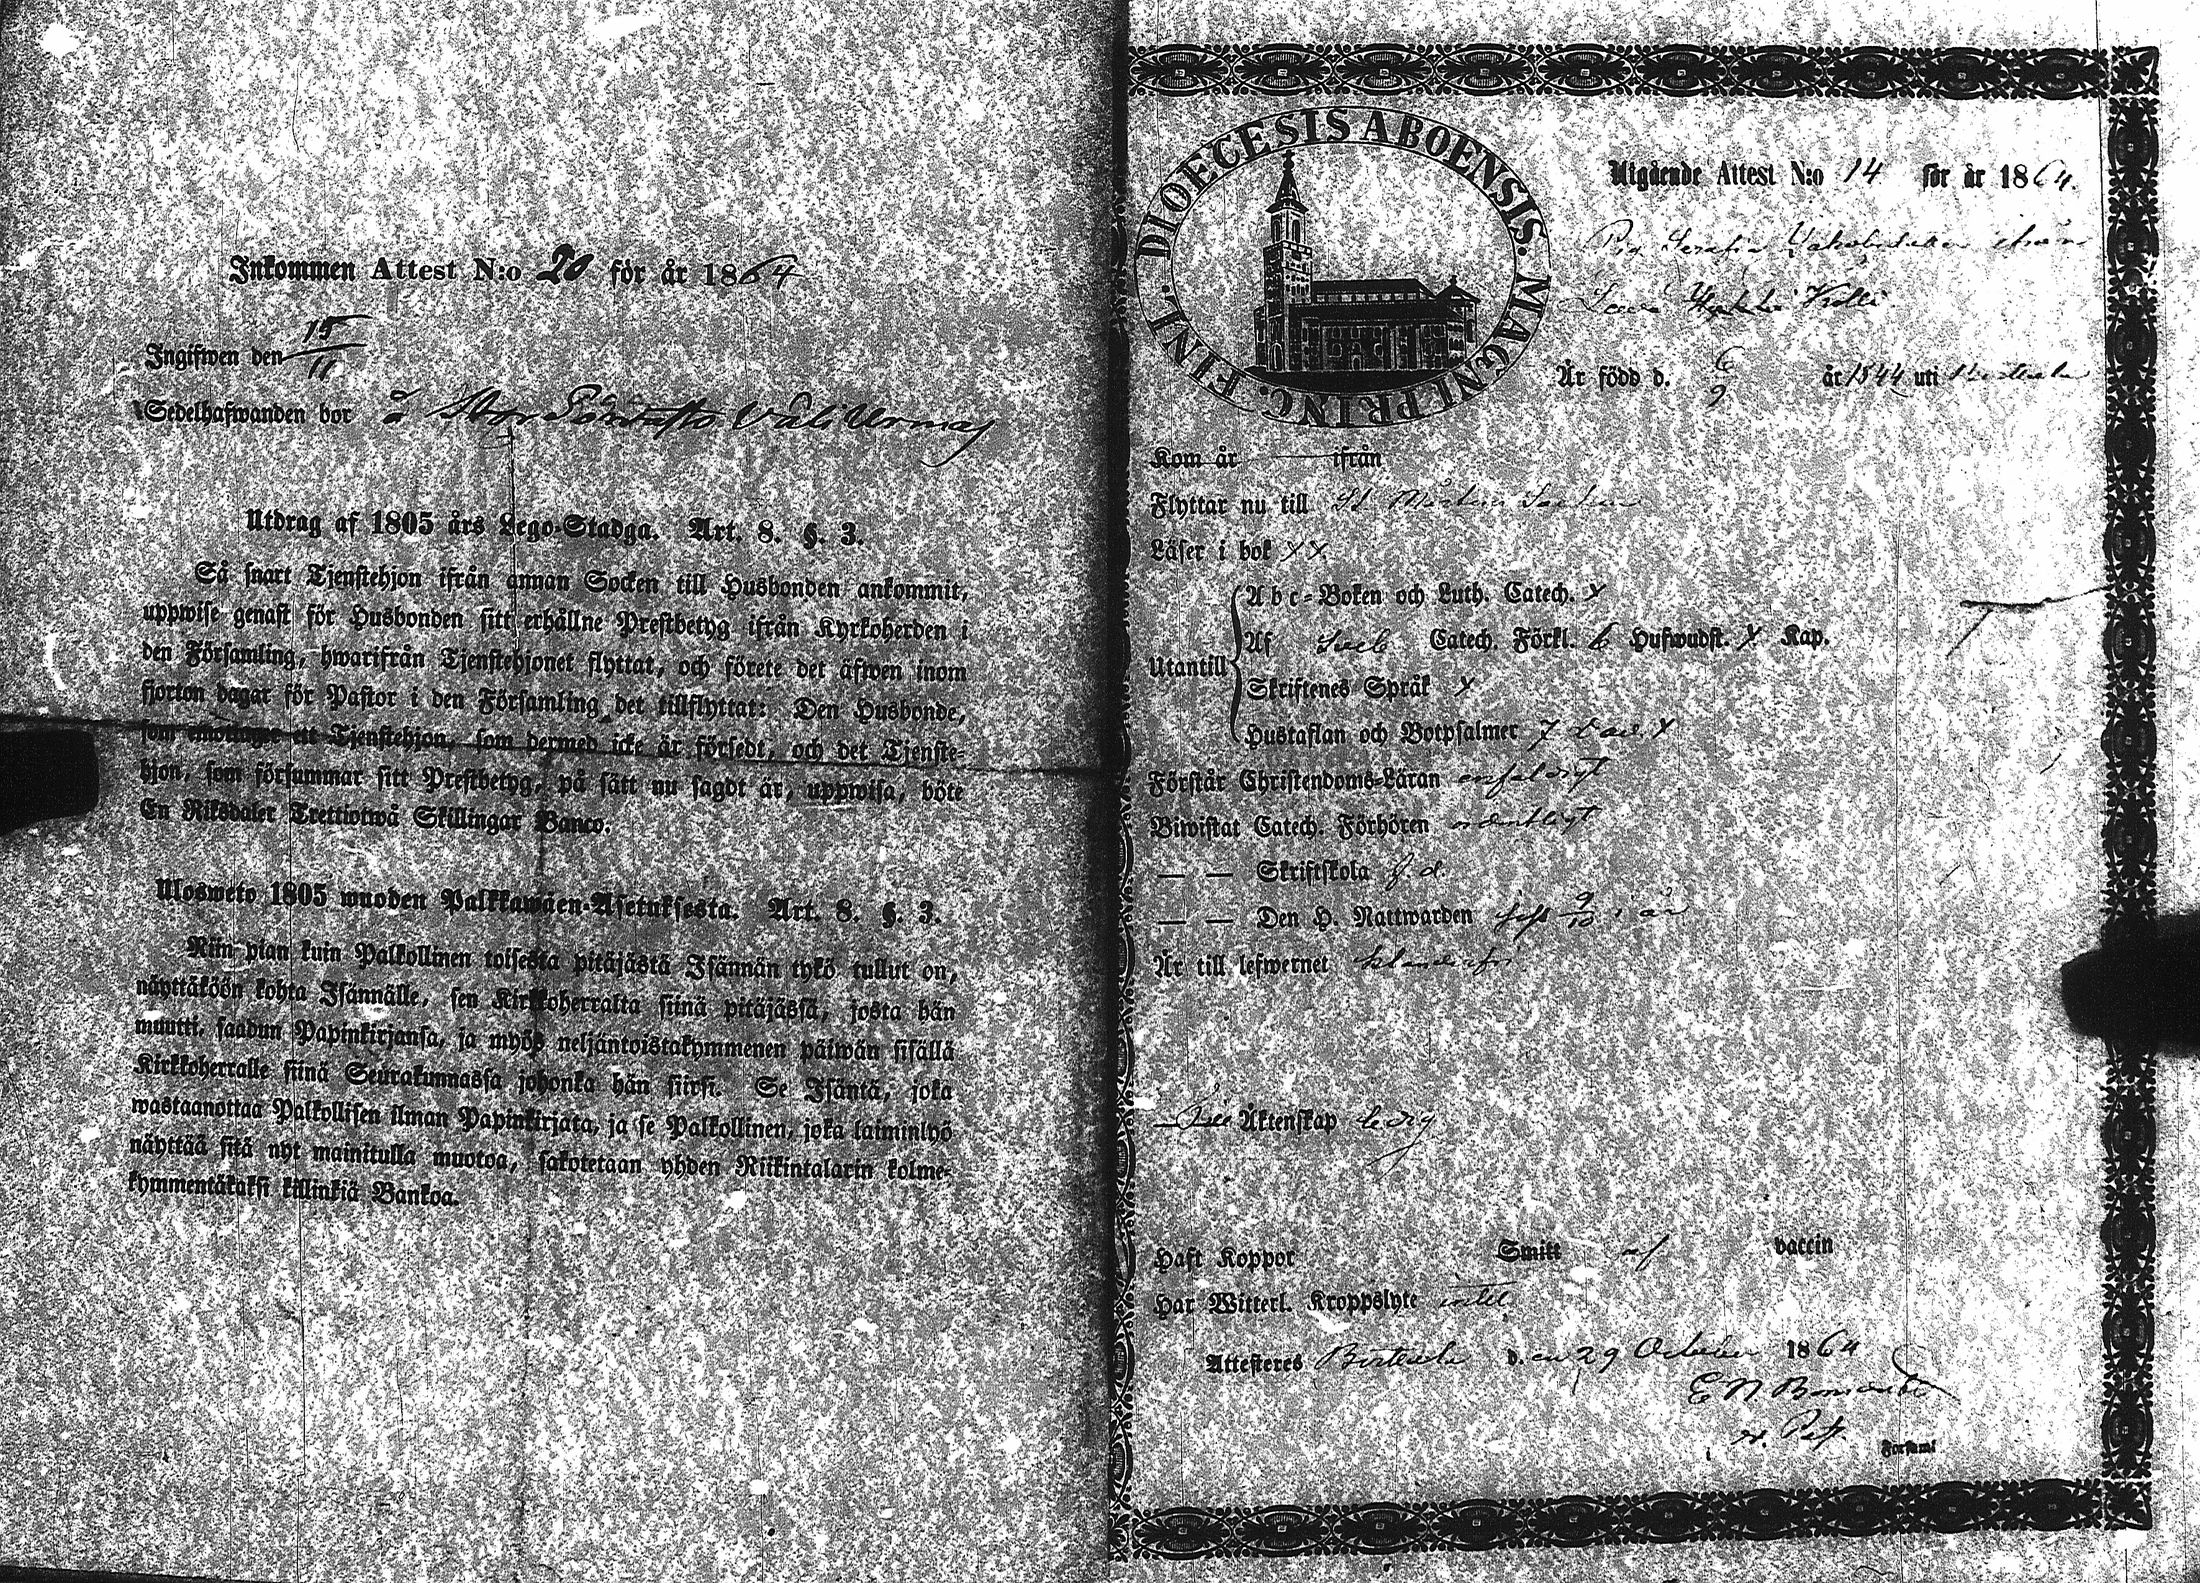 Inkommen Attest N:o 20 för år 1864
Ingifwen den 15/11
Sedelhafwanden bor å
Utdrag af 1805 års Lego-Stadga. Art. 8. §. 3.
Så snart Tjenstehjon ifrån annan Socken till Husbonden ankommit,
uppwise genast för Husbonden sitt erhållne Prestbetyg ifrån Kyrkoherden i
den Församling, hwarifrån Tjenstehjonet flyttat, och förete det äfwen inom
fjorton dagar för Pastor i den Församling det tillflyttat: Den Husbonde,
som emottager ett Tjenstehjon, som dermed icke är försedt, och det Tjenste-
hjon, som försummar sitt Prestbetyg, på sätt nu sagdt är, uppwisa, böte
En Riksdaler Trettiotwå Skillingar Banco.
Ulosweto 1805 wuoden Palkkawäen-Asetuksesta. Art. 8. §. 3.
Niin pian kuin Palkollinen toisesta pitäjästä Isännän tykö tullut on,
näyttäköön kohta Isännälle, sen Kirkkoherralta siinä pitäjässä, josta hän
muutti, saadun Papinkirjansa, ja myös neljäntoistakymmenen päiwän sisällä
Kirkkoherralle siinä Seurakunnassa johonka hän siirsi. Se Isäntä, joka
wastaanottaa Palkollisen ilman Papinkirjata, ja se Palkollinen, joka laiminlyö
näyttää sitä nyt mainitulla muotoa, sakotetaan yhden Riikintalarin kolme-
kymmentäkaksi killinkiä Bankoa.
FINL. DIOECESIS ABOENSIS. MAGNI PRINC.
Utgående Attest N:o 14 för år 1864.
Pig. Serafia
Är född d. 6/9 år 1844 uti
Kom år ifrån
Flyttar nu till St Mårtens Socken
Läser i bok xx
Utantill
A b c-Boken och Luth. Catech. x
Af Sveb Catech. Förkl. 6 Hufwudst. x Kap.
Skriftenes Språk x
Hustaflan och Botpsalmer 7 x
Förstår Christendoms-Läran enfaldigt
Biwistat Catech. Förhören ordentligt
— — Skriftskola
— — Den H. Nattwarden sist 9/10 i år
Är till lefwernet
Till Äktenskap ledig
Haft Koppor Smitt af vaccin
Har Witterl. Kroppslyte intet
Attesteres d. en 29 October 1864
i Församl